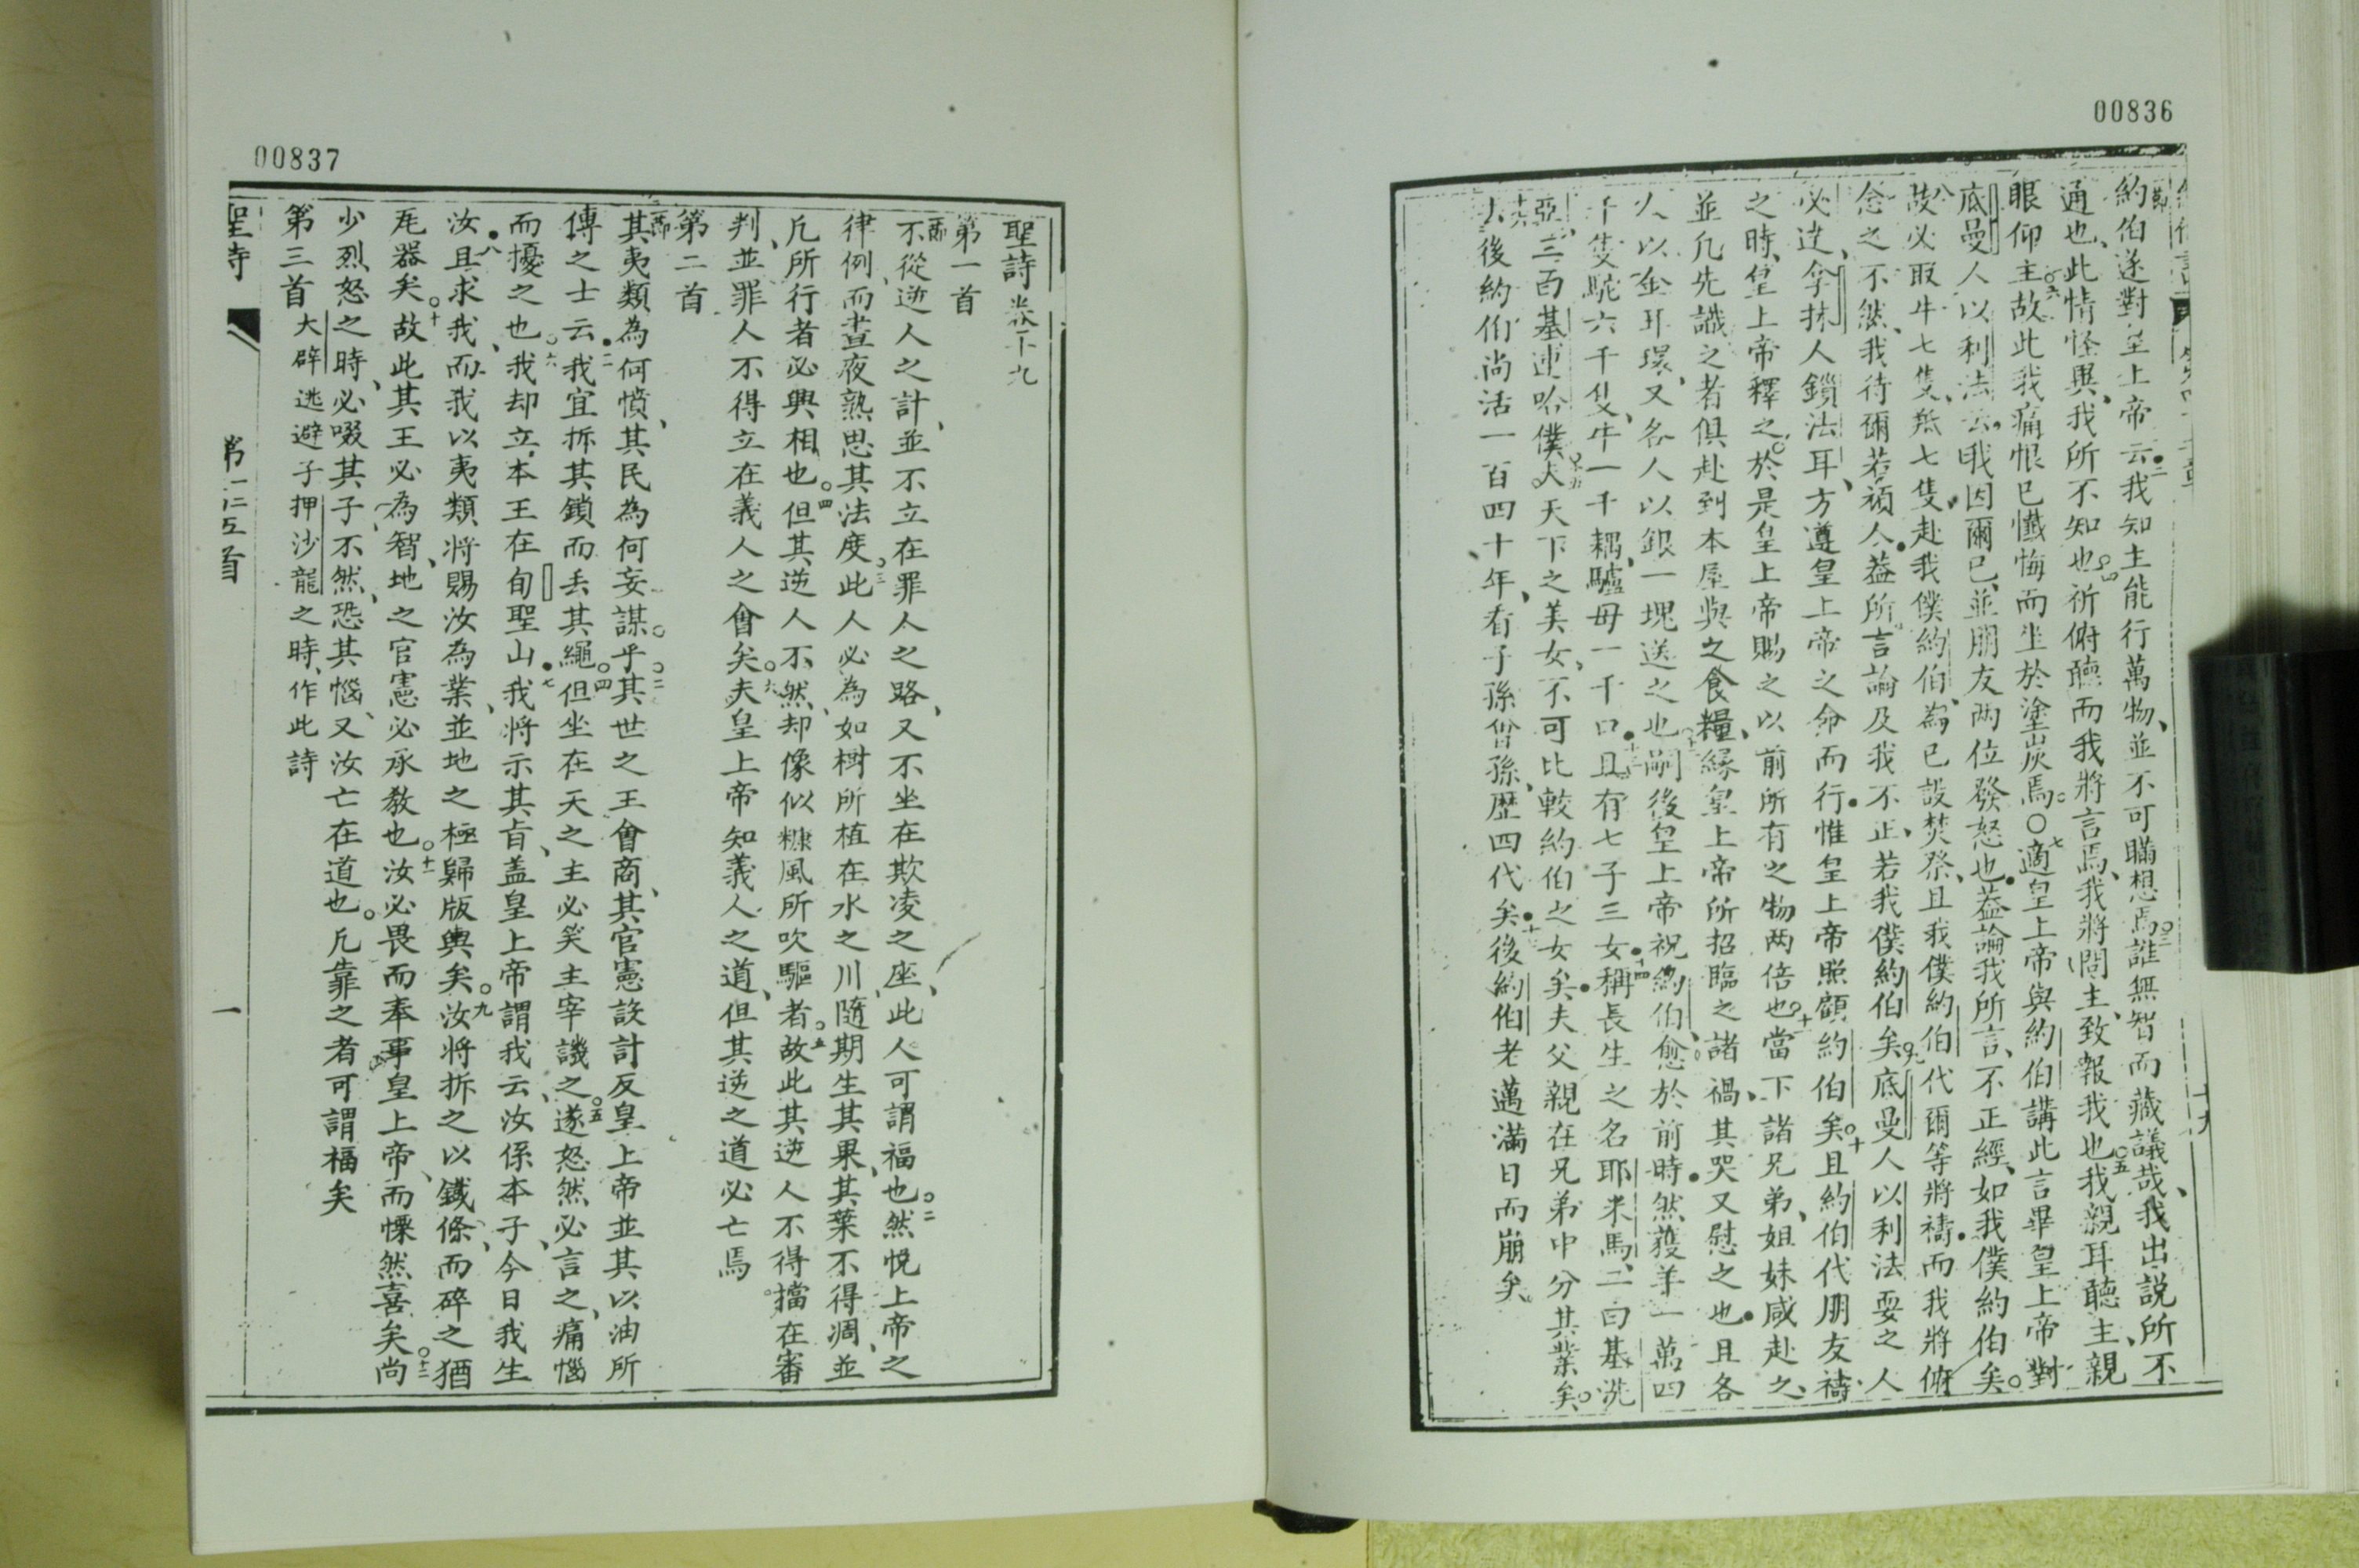 00836
約伯遂對皇上帝云我知主能行萬物、並不可瞞想焉誰無智而藏議哉、我出說所不
通也、此情怪異、我所不知也祈俯聽而我將言焉、我將問主、致報我也我親耳聽主、親
眼仰主故此我痛恨已懺悔而坐於塗炭焉○適皇上帝與約伯講此言畢皇上帝對
底曼人以利法云、我因爾已、並朋友两位發怒也、蓋論我所言、不正經、如我僕約伯矣
故必取牛七隻、羝七隻、赴我僕約伯、為已設焚祭、且我僕約伯代爾等將禱、而我將俯
念之不然、我待爾若頑人、蓋所言論及我不正、若我僕約伯矣底曼人以利法耍之人
必達、拿抹人鎖法耳、方遵皇上帝之命而行、惟皇上帝照顧約伯矣且約伯代朋友禱
之時、皇上帝釋之、於是皇上帝賜之以前所有之物两倍也當下諸兄弟、姐妹咸赴之、
並凡先識之者俱赴到本屋與之食糧、緣皇上帝所招臨之諸禍、其哭又慰之也、且各
人以金耳環、又各人以銀一塊送之也嗣後皇上帝祝約伯、愈於前時、然獲羊一萬四
千隻、駝六千隻、牛一千耦、驢母一千口、且有七子三女、稱長生之名耶米馬、二曰基洗
亞、三百基連哈僕、夫天下之美女、不可比較約伯之女矣、夫父親在兄弟中分其業矣
後約伯尚活一百四十年、看子孫曾孫、歷四代矣、後約伯老邁滿日而崩矣
十九
00837
聖詩卷十九
第一首
不從逆人之計、並不立在罪人之路、又不坐在欺凌之座、此人可謂福也然悅上帝之
律例、而晝夜熟思其法度此人必為如樹所植在水之川、隨期生其果、其葉不得凋、並
凡所行者必興相也但其逆人不然、却像似糠風所吹驅者故此其逆人不得擋在審
判、並罪人不得立在義人之會矣夫皇上帝知義人之道、但其逆之道必亡焉
第二首
其夷類為何憤、其民為何妄謀乎其世之王會商、其官憲設計反皇上帝並其以油所
傅之士云我宜拆其鎖而丟其繩但坐在天之主必笑主宰譏之遂怒然必言之、痛惱
而擾之也我却立本王在旬聖山我將示其旨、盖皇上帝謂我云、汝係本子、今日我生
汝且求我、而我以夷類將賜汝為業、並地之極歸版輿矣汝將拆之以鐵條、而碎之猶
瓦器矣故此其王必為智、地之官憲必承教也汝必畏而奉事皇上帝、而慄然喜矣尚
少烈怒之時、必啜其子不然、恐其惱、又汝亡在道也。凡靠之者可謂福矣
第三首大辟逃避子押沙龍之時、作此詩
聖詩
第一二三首
一